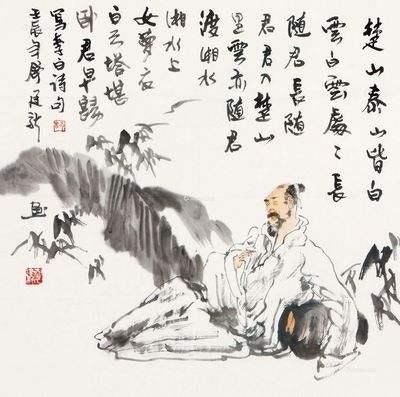 楚山泰山皆白
雲白雲處々長
隨君長隨
君君入楚山
里雲亦隨君
渡湘水
湘水上
女萝衣
白云塔堪
卧君早歸
寫李白诗句
壬辰年
画